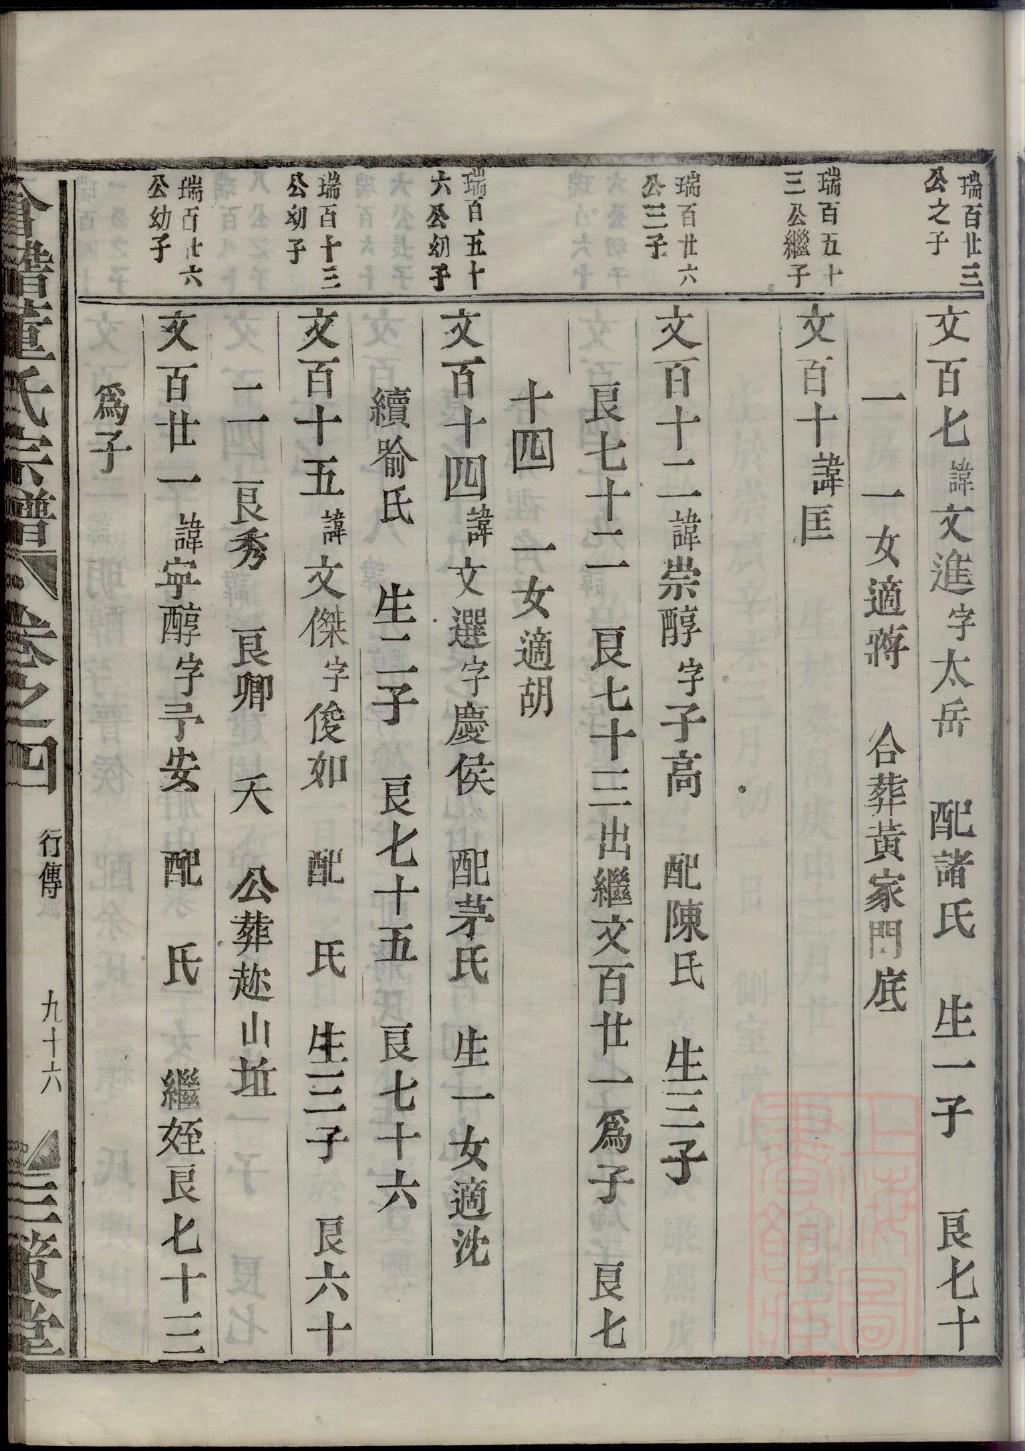 瑞百廿三
公之子
文百七諱文進字太岳　配諸氏　生一子　艮七十
一　一女適蔣　合葬黃家門底
瑞百五十
三公繼子
文百十諱匡
瑞百廿六
公三子
文百十二諱崇醇字子高　配陳氏　生三子
艮七十二　艮七十三出繼文百廿一爲子　艮七
十四　一女適胡
瑞百五十
六公幼子
文百十四諱文選字慶侯　配茅氏　生一女適沈
續喻氏　生二子　艮七十五　艮七十六
瑞百十三
公幼子
文百十五諱文傑字俊如　配　氏　生三子　艮六十
二　艮秀　艮卿　夭　公葬𧺆山坵
瑞百廿六
公幼子
文百廿一諱寧醇字予安　配　氏　繼姪艮七十三
爲子
會稽董氏宗譜　卷之四　行傳　九十六　三策堂